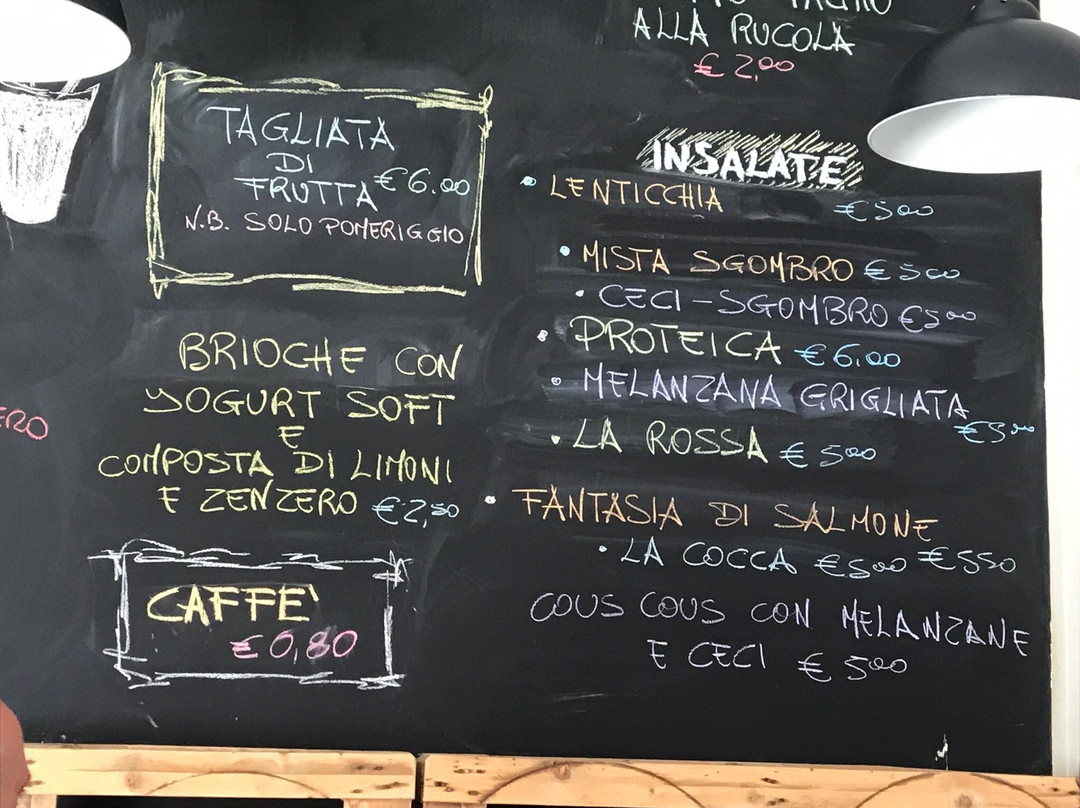 ALLA RUCOLA
€ 2,00
TAGLIATA
DI
FRUTTA €6.00
N.B. SOLO POMERIGGIO
BRIOCHE CON
YOGURT SOFT
E
COMPOSTA DI LIMONI
E ZENZERO €2,50
CAFFE'
€0,80
INSALATE
• LENTICCHIA €5,00
• MISTA SGOMBRO €5,00
• CECI-SGOMBRO €5,00
• PROTEICA €6,00
• MELANZANA GRIGLIATA
€5,00
• LA ROSSA €5,00
• FANTASIA DI SALMONE
€5,50
• LA COCCA €5,00
COUS COUS CON MELANZANE
E CECI €5,00